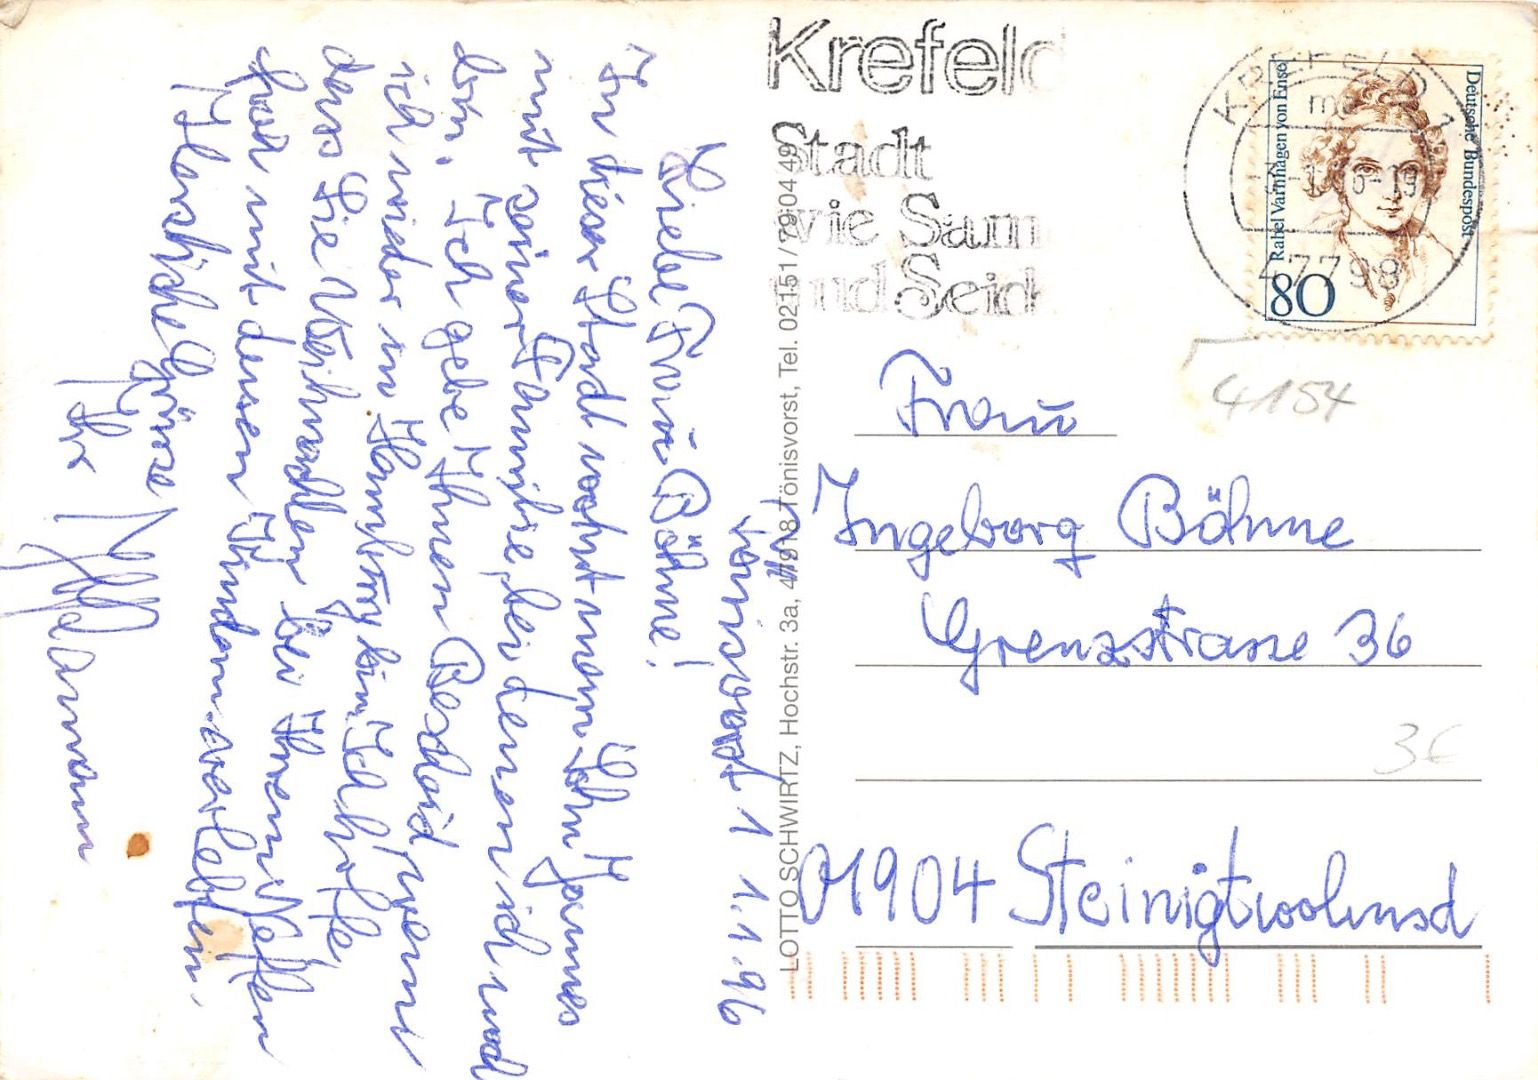 Tönisvorst 1 1.1.96
Liebe Frau Böhme!
In dieser Stadt wohnt mein Sohn Hannes
mit seiner Familie, bei denen ich und
bin. Ich gebe Ihnen Bescheid, wenn
ich wieder in Hamburg bin. Ich hoffe,
dass Sie Weihnachten bei Ihrem Neffen
und mit dessen Kindern verlebten.
Herzliche Grüsse
Ihr
Krefeld
Stadt
wie Sam
und Seide
KREFELD 1
-1.96-19
47798
Deutsche Bundespost
Rahel Varnhagen von Ense
80
4154
Frau
Ingeborg Böhme
Grenzstrasse 36
3€
01904 Steinigtwolmsd
LOTTO SCHWIRTZ, Hochstr. 3a, 47918 Tönisvorst, Tel. 02151/79 04 49